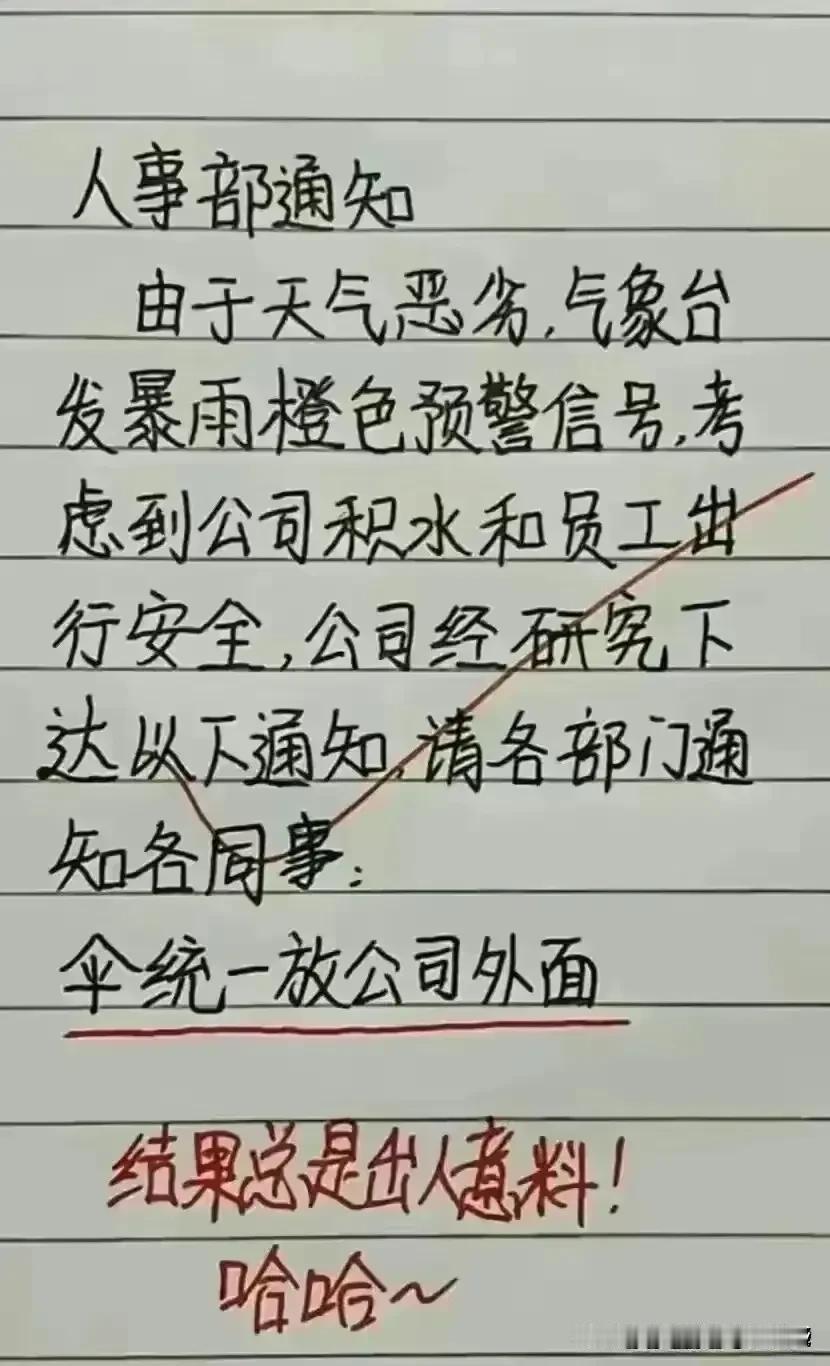 人事部通知
由于天气恶劣,气象台
发暴雨橙色预警信号,考
虑到公司积水和员工出
行安全,公司经研究下
达以下通知,请各部门通
知各同事:
伞统一放公司外面
结果总是出人意料!
哈哈~